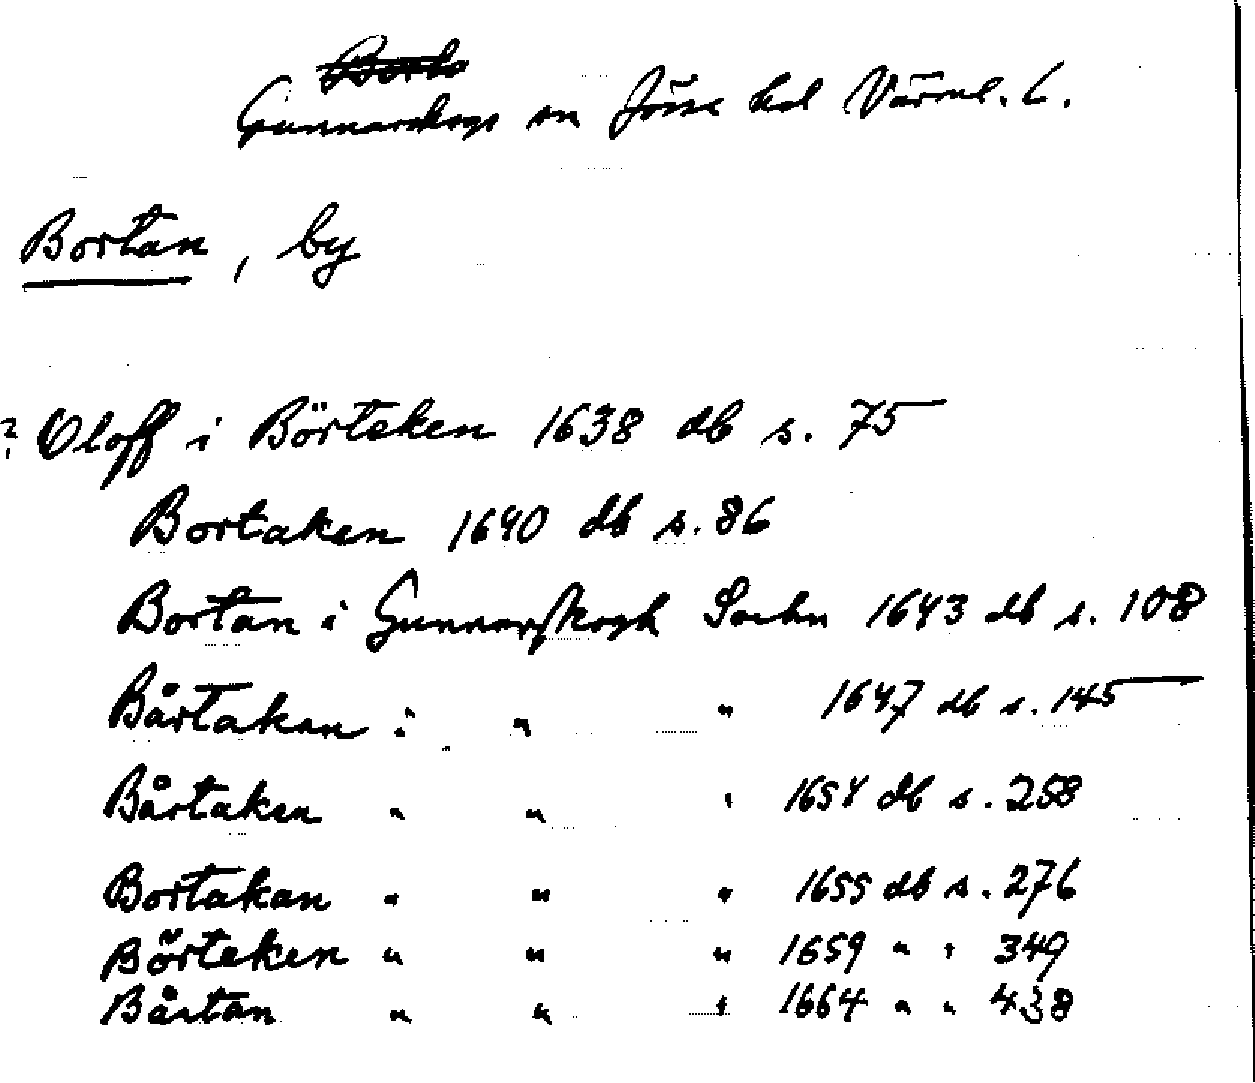 Borta
Gunnarskogs sn Jösse hd Värml. l.
Bortan, by
? Oloff i Börteken 1638 db s. 75
Bortaken 1640 db s. 86
Bortan i Gunnerskogh Sochn 1643 db s. 108
Bårtaken i " " 1647 db s. 145
Bårtaken " " " 1654 db s. 258
Bortakan " " " 1655 db s. 276
Börteken " " " 1659 " " 349
Bårtan " " " 1664 " " 438